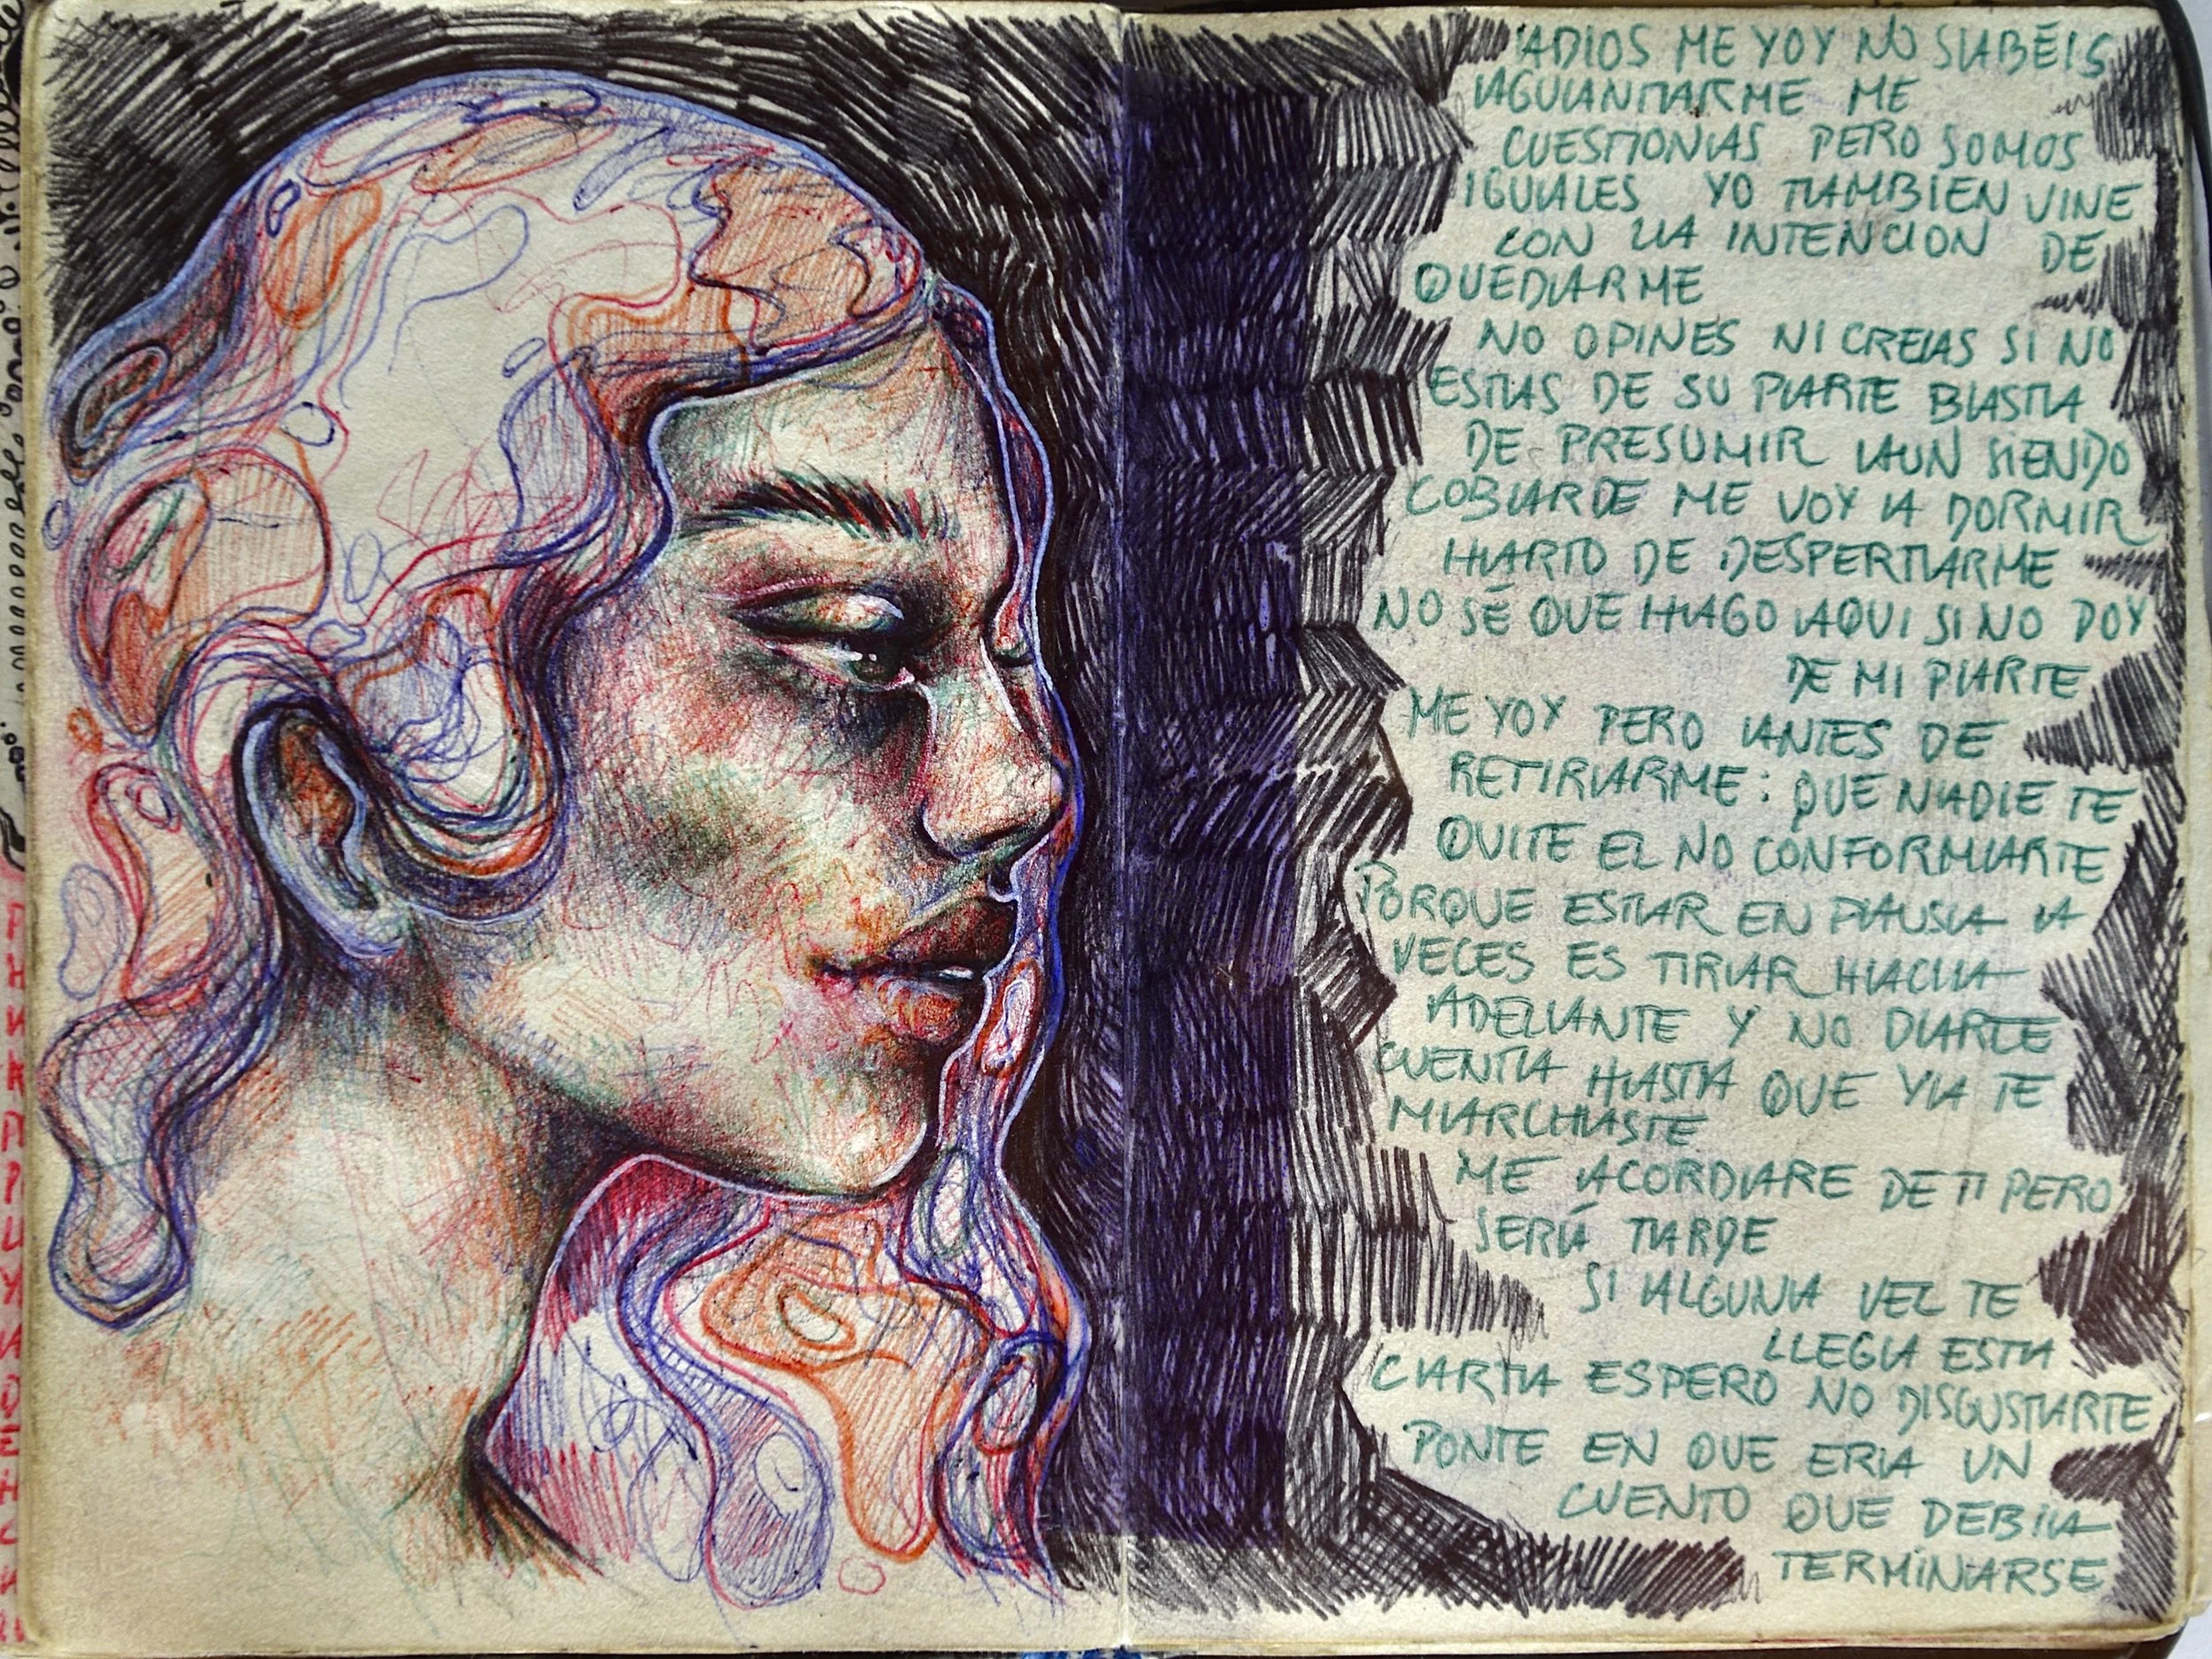 ADIOS ME VOY NO SABÉIS
AGUANTARME ME
CUESTIONAS PERO SOMOS
IGUALES YO TAMBIEN VINE
CON LA INTENCION DE
QUEDARME
NO OPINES NI CREAS SI NO
ESTAS DE SU PARTE BASTA
DE PRESUMIR AUN SIENDO
COBARDE ME VOY A DORMIR
HARTO DE DESPERTARME
NO SÉ QUE HAGO AQUI SI NO DOY
DE MI PARTE
ME VOY PERO ANTES DE
RETIRARME: QUE NADIE TE
QUITE EL NO CONFORMARTE
PORQUE ESTAR EN PAUSA A
VECES ES TIRAR HACIA
ADELANTE Y NO DARTE
CUENTA HASTA QUE YA TE
MARCHASTE
ME ACORDARE DE TI PERO
SERÁ TARDE
SI ALGUNA VEZ TE
LLEGA ESTA
CARTA ESPERO NO DISGUSTARTE
PONTE EN QUE ERA UN
CUENTO QUE DEBIA
TERMINARSE